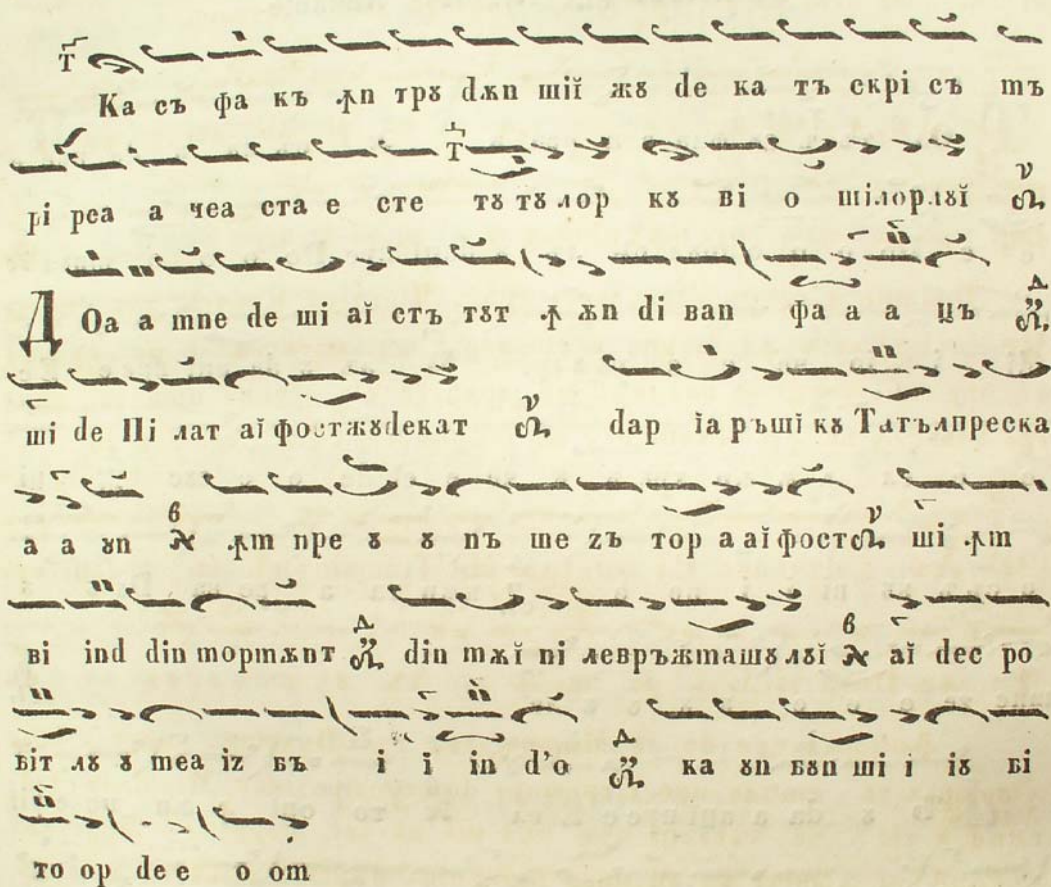 Ка съ фа къ ꙟn трȣ dѫn шiĭ жȣ de ка тъ скрi съ mъ
рi реа а чеа ста е сте тȣ тȣ лор кȣ вi о шiлорлȣĭ
ДОа а mne de шi аĭ стъ тȣт ꙟ ѫn di ван фа а а цъ
шi de Пi лат аĭ фостжȣdекат dар ĭа ръшi кȣ Татълпреска
а а ȣn ꙟm пре ȣ ȣ nъ ше zъ тор а аĭ фост шi ꙟm
вi ind din mорmѫnт din mѫĭ ni левръжmашȣлȣĭ аĭ dес ро
бiт лȣ ȣ mеа iz бъ i i in d'о ка ȣn бȣn шi i iȣ бi
то ор de е о оm